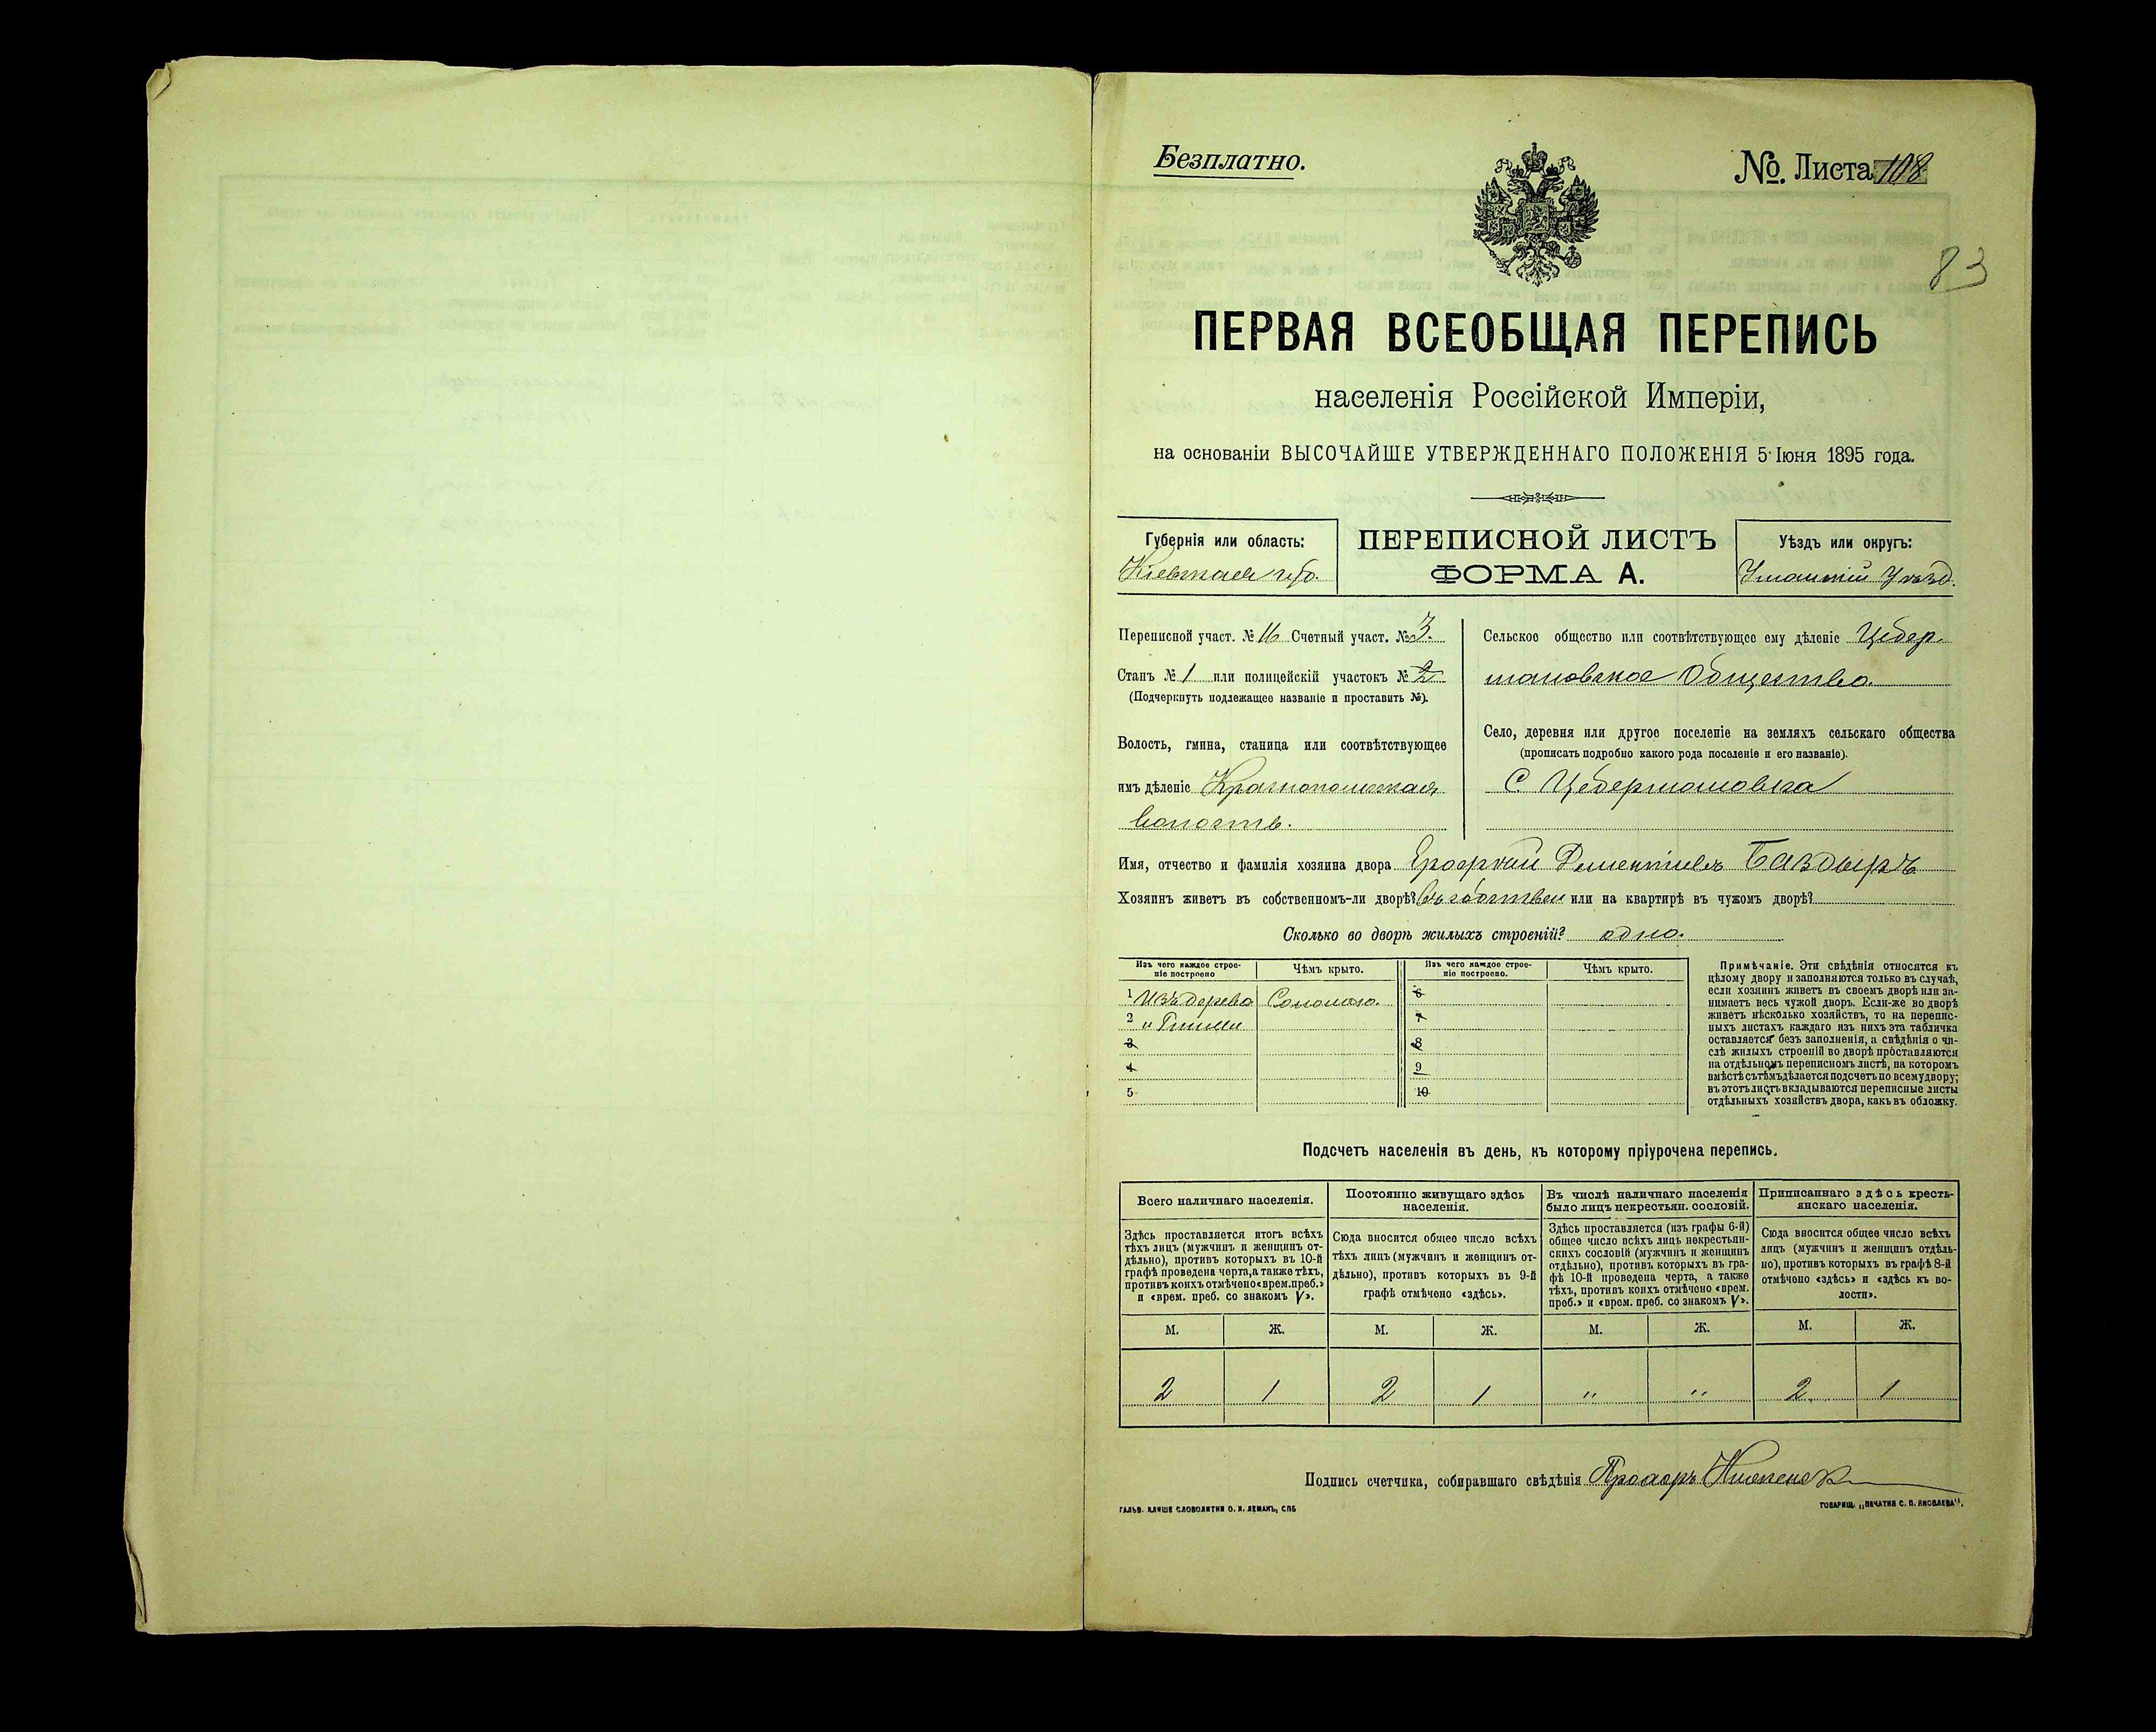 Безплатно.
№. Листа 108
83
ПЕРВАЯ ВСЕОБЩАЯ ПЕРЕПИСЬ
населенія Россійской Имперіи,
на основаніи ВЫСОЧАЙШЕ УТВЕРЖДЕННАГО ПОЛОЖЕНІЯ 5 Іюня 1895 года.
Губернія или область:
Кіевская губ.
ПЕРЕПИСНОЙ ЛИСТЪ
ФОРМА А.
Уѣздъ или округъ:
Уманскій Уѣзд.
Переписной участ. № 16 Счетный участ. № 3.
Станъ № 1 или полицейскій участокъ № 2
(Подчеркнуть подлежащее названіе и проставить №).
Волость, гмина, станица или соотвѣтствующее
имъ дѣленіе Краснопольская
волость.
Сельское общество или соотвѣтствующее ему дѣленіе Цебер-
мановское Общество.
Село, деревня или другое поселеніе на земляхъ сельскаго общества
(прописать подробно какого рода поселеніе и его названіе).
С. Цебермановка
Имя, отчество и фамилія хозяина двора Дементіевъ Баздыръ
Хозяинъ живетъ въ собственномъ-ли дворѣ? въ собствен или на квартирѣ въ чужомъ дворѣ?
Сколько во дворѣ жилыхъ строеній? одно.
Изъ чего каждое строе-
ніе построено
Чѣмъ крыто.
Изъ чего каждое строе-
ніе построено.
Чѣмъ крыто.
1 Изъ дерева Соломою. 6
2 и Глины 7
3 8
4 9
5 10
Примѣчаніе. Эти свѣдѣнія относятся къ
цѣлому двору и заполняются только въ случаѣ,
если хозяинъ живетъ въ своемъ дворѣ или за-
нимаетъ весь чужой дворъ. Если-же во дворѣ
живетъ нѣсколько хозяйствъ, то на перепис-
ныхъ листахъ каждаго изъ нихъ эта табличка
оставляется безъ заполненія, а свѣдѣнія о чи-
слѣ жилыхъ строеній во дворѣ проставляются
на отдѣльномъ переписномъ листѣ, на которомъ
вмѣстѣ съ тѣмъ дѣлается подсчетъ по всему двору;
въ этотъ листъ вкладываются переписные листы
отдѣльныхъ хозяйствъ двора, какъ въ обложку.
Подсчетъ населенія въ день, къ которому пріурочена перепись.
Всего наличнаго населенія.
Здѣсь проставляется итогъ всѣхъ
тѣхъ лицъ (мужчинъ и женщинъ от-
дѣльно), противъ которыхъ въ 10-й
графѣ проведена черта, а также тѣхъ,
противъ коихъ отмѣчено «врем. преб.»
и «врем. преб. со знакомъ V».
Постоянно живущаго здѣсь
населенія.
Сюда вносится общее число всѣхъ
тѣхъ лицъ (мужчинъ и женщинъ от-
дѣльно), противъ которыхъ въ 9-й
графѣ отмѣчено «здѣсь».
Въ числѣ наличнаго населенія
было лицъ некрестьян. сословій.
Здѣсь проставляется (изъ графы 6-й)
общее число всѣхъ лицъ некрестьян-
скихъ сословій (мужчинъ и женщинъ
отдѣльно), противъ которыхъ въ гра-
фѣ 10-й проведена черта, а также
тѣхъ, противъ коихъ отмѣчено «врем.
преб.» и «врем. преб. со знакомъ V».
Приписаннаго здѣсь кресть-
янскаго населенія.
Сюда вносится общее число всѣхъ
лицъ (мужчинъ и женщинъ отдѣль-
но), противъ которыхъ въ графѣ 8-й
отмѣчено «здѣсь» и «здѣсь къ во-
лости».
М. Ж. М. Ж. М. Ж. М. Ж.
2 1 2 1 " " 2 1
Подпись счетчика, собиравшаго свѣдѣнія Прохоръ
ГАЛЬВ. КЛИШЕ СЛОВОЛИТНИ О. И. ЛЕМАНЪ, СПБ
ТОВАРИЩ. „ПЕЧАТНЯ С. П. ЯКОВЛЕВА".